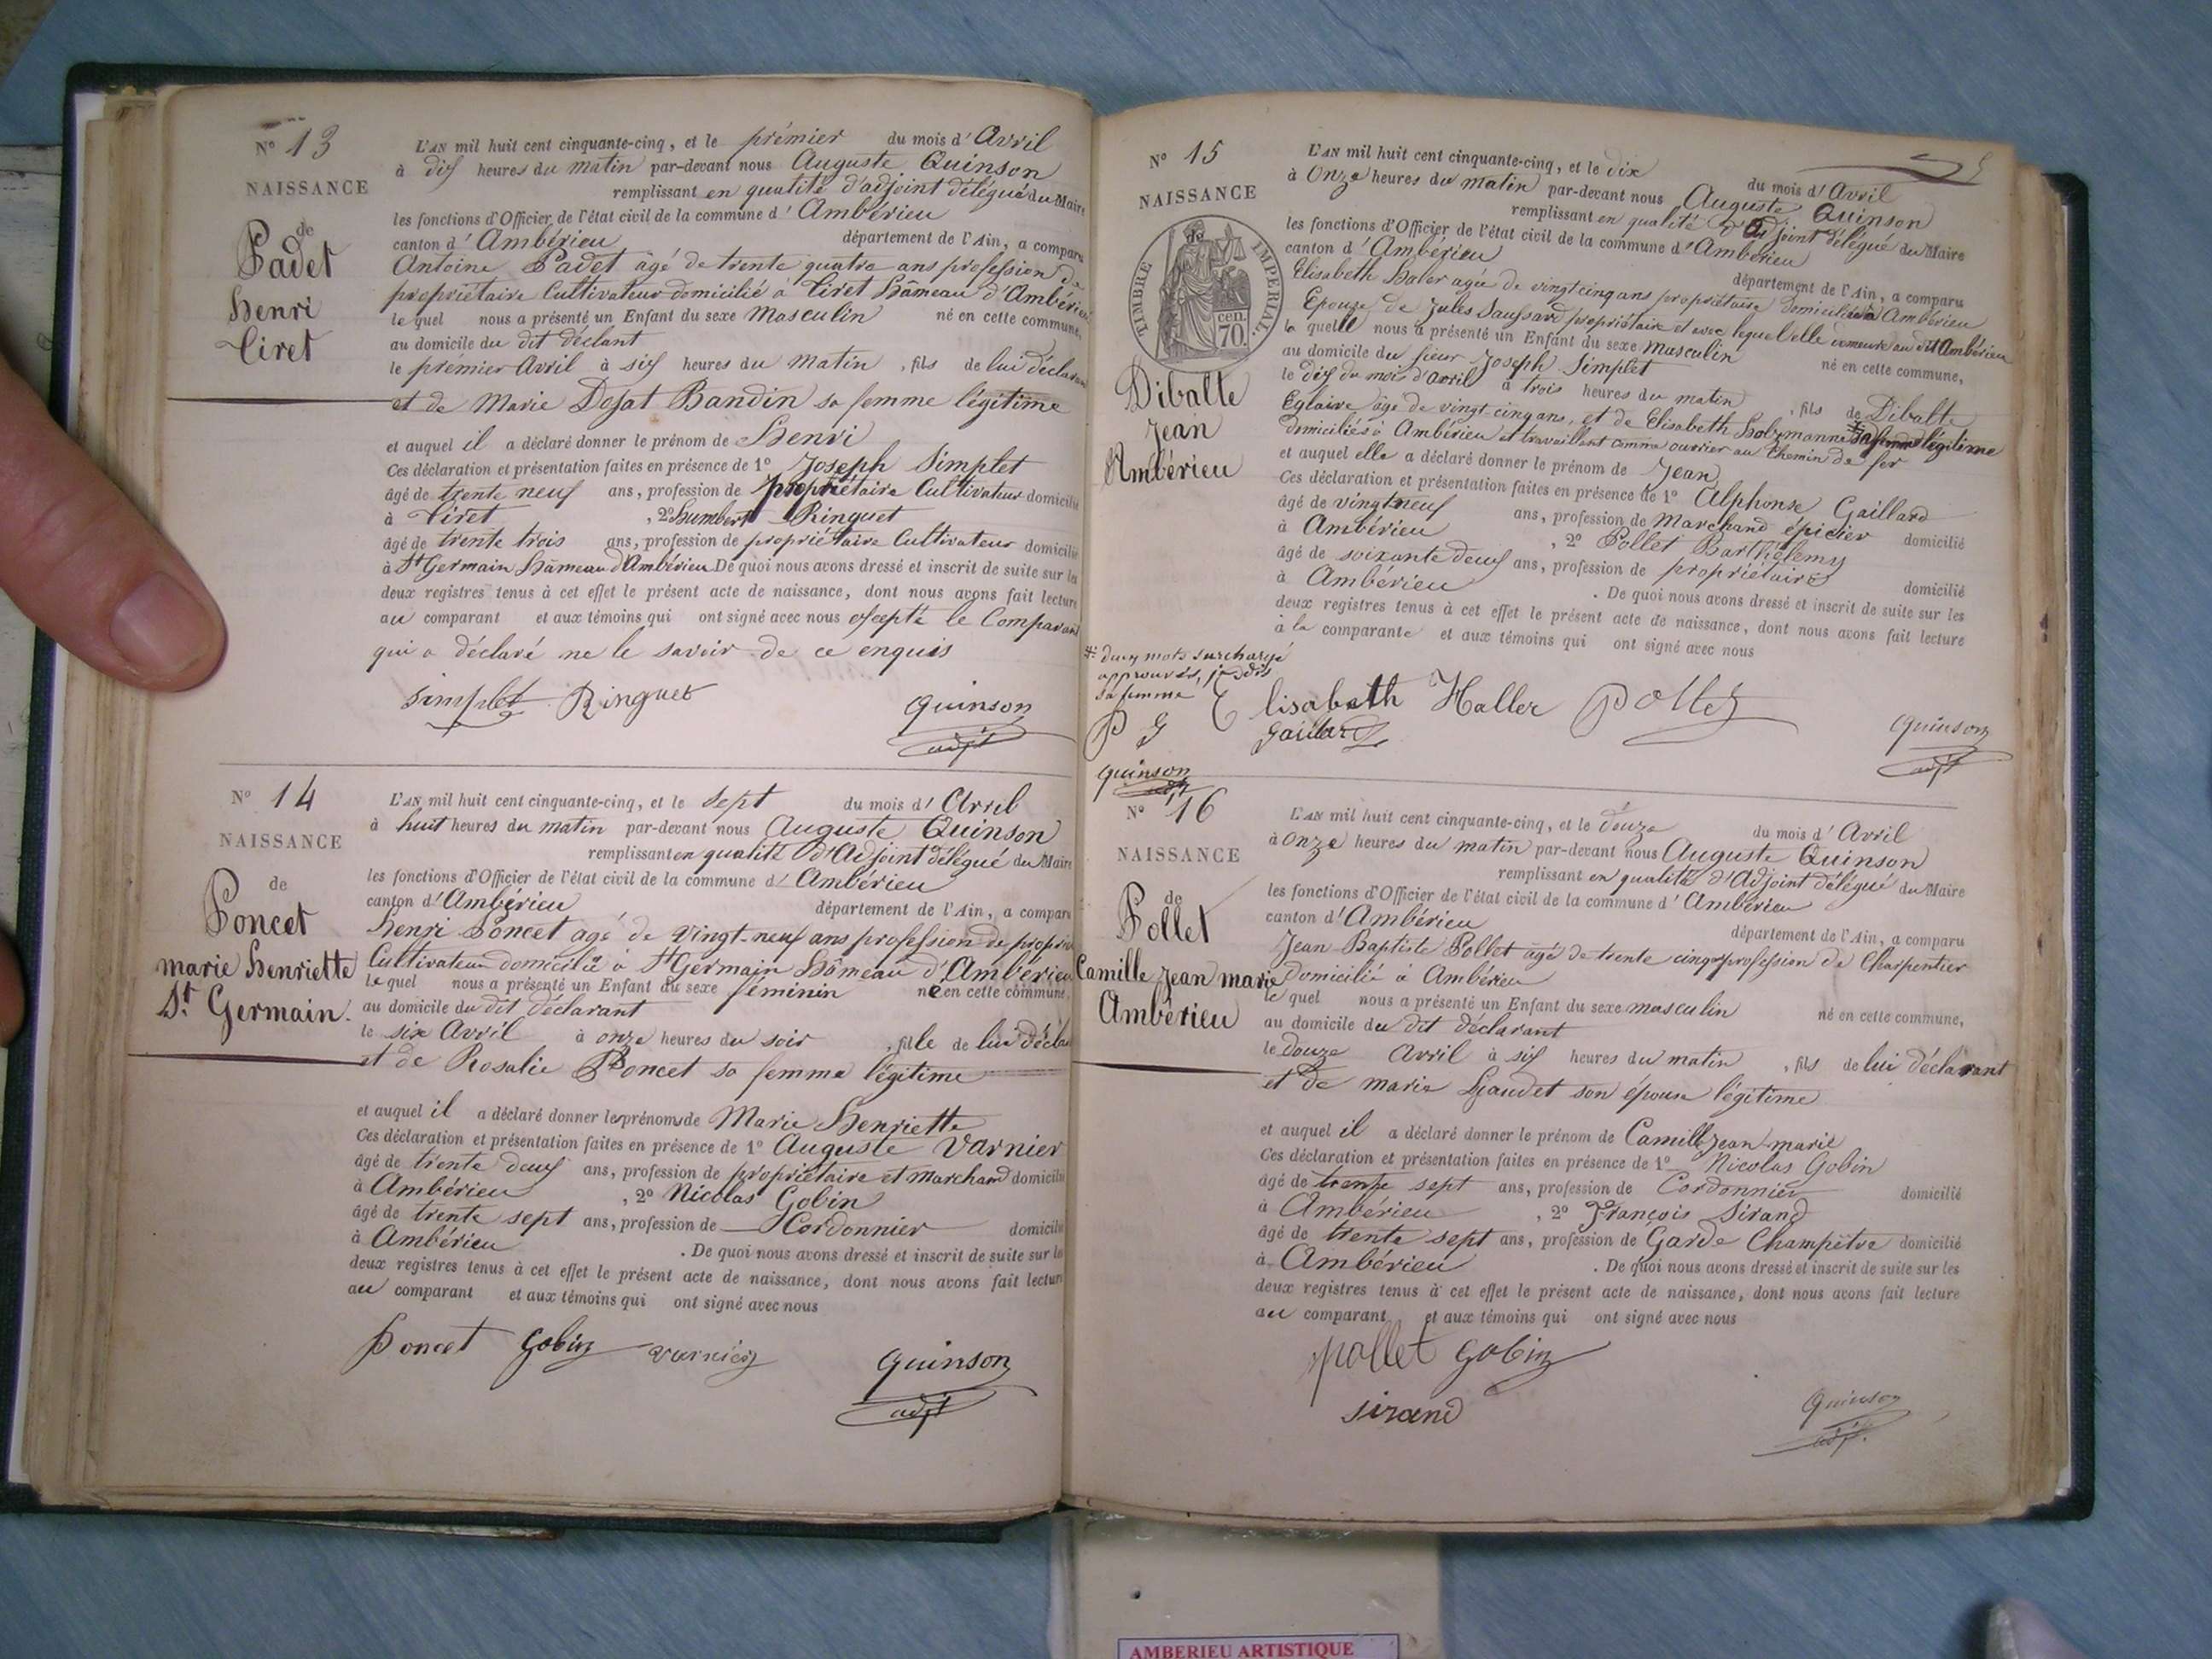 N° 13
NAISSANCE
de
Padet
Henri
Tiret
L'AN mil huit cent cinquante-cinq, et le prémier du mois d'Avril
à dix heures du matin par-devant nous Auguste Quinson
remplissant en qualité d'adjoint délégué du Maire
les fonctions d'Officier de l'état civil de la commune d'Ambérieu
canton d'Ambérieu département de l'Ain, a comparu
Antoine Padet âgé de trente quatre ans profession de
propriétaire Cultivateur domicilié à Tiret hâmeau d'Ambérieu
le quel nous a présenté un Enfant du sexe Masculin né en cette commune,
au domicile du dit déclant
le prémier Avril à six heures du matin, fils de lui déclarant
et de Marie Bandin sa femme légitime
et auquel il a déclaré donner le prénom de Henri
Ces déclaration et présentation faites en présence de 1° Joseph Simplet
âgé de trente neuf ans, profession de propriétaire Cultivateur domicilié
à Tiret, 2° humbert Ringuet
âgé de trente trois ans, profession de propriétaire Cultivateur domicilié
à St Germain hâmeau d'Ambérieu De quoi nous avons dressé et inscrit de suite sur les
deux registres tenus à cet effet le présent acte de naissance, dont nous avons fait lecture
au comparant et aux témoins qui ont signé avec nous excepté le Comparant
qui a déclaré ne le savoir de ce enquis
Simplet Ringuet Quinson
adjt
N° 14
NAISSANCE
de
Poncet
marie henriette
St Germain.
L'AN mil huit cent cinquante-cinq, et le Sept du mois d'Avril
à huit heures du matin par-devant nous Auguste Quinson
remplissant en qualité d'Adjoint délégué du Maire
les fonctions d'Officier de l'état civil de la commune d'Ambérieu
canton d'Ambérieu département de l'Ain, a comparu
henri Poncet agé de vingt-neuf ans profession de propri
Cultivateur domicilié à St Germain hâmeau d'Ambérieu
le quel nous a présenté un Enfant du sexe féminin né en cette commune,
au domicile du dit déclarant
le six Avril à onze heures du soir, fille de lui décla
et de Rosalie Poncet sa femme légitime
et auquel il a déclaré donner les prénoms de Marie Henriette
Ces déclaration et présentation faites en présence de 1° Auguste Varnier
âgé de trente deux ans, profession de propriétaire et marchand domicilié
à Ambérieu, 2° Nicolas Gobin
âgé de trente sept ans, profession de Cordonnier domicilié
à Ambérieu. De quoi nous avons dressé et inscrit de suite sur les
deux registres tenus à cet effet le présent acte de naissance, dont nous avons fait lecture
au comparant et aux témoins qui ont signé avec nous
Poncet Gobin Varnier Quinson
adjt
N° 15
NAISSANCE
TIMBRE IMPÉRIAL.
70 cen.
Dibalte
Jean
Ambérieu
L'AN mil huit cent cinquante-cinq, et le dix du mois d'Avril
à Onze heures du matin par-devant nous Auguste Quinson
remplissant en qualité d'adjoint délégué du Maire
les fonctions d'Officier de l'état civil de la commune d'Ambérieu
canton d'Ambérieu département de l'Ain, a comparu
Elisabeth haler agée de vingt cinq ans propriétaire domiciliée à Ambérieu
Epouze de Jules Saussard propriétaire et avec lequel elle demeure au dit Ambérieu
la quelle nous a présenté un Enfant du sexe masculin né en cette commune,
au domicile du sieur Joseph Simplet
le dix du mois d'avril à trois heures du matin, fils de Dibalte
Eglaire âgé de vingt-cinq ans, et de Elisabeth holzmanne sa femme légitime
domiciliés à Ambérieu et travaillant comme ouvrier au Chemin de fer
et auquel elle a déclaré donner le prénom de Jean
Ces déclaration et présentation faites en présence de 1° Alphonse Gaillard
âgé de vingt neuf ans, profession de Marchand épicier domicilié
à Ambérieu, 2° Pollet Barthélemy
âgé de soixante deux ans, profession de propriétaire domicilié
à Ambérieu. De quoi nous avons dressé et inscrit de suite sur les
deux registres tenus à cet effet le présent acte de naissance, dont nous avons fait lecture
à la comparante et aux témoins qui ont signé avec nous
deux mots surchargé
approuvés, je dis
sa femme
P G
Quinson
Elisabeth Haller Pollet
Gaillard Quinson
adjt
N° 16
NAISSANCE
de
Pollet
Camille Jean marie
Ambérieu
L'AN mil huit cent cinquante-cinq, et le douze du mois d'Avril
à onze heures du matin par-devant nous Auguste Quinson
remplissant en qualité d'Adjoint délégué du Maire
les fonctions d'Officier de l'état civil de la commune d'Ambérieu
canton d'Ambérieu département de l'Ain, a comparu
Jean-Baptiste Pollet agé de trente cinq profession de Charpentier
Domicilié à Ambérieu
le quel nous a présenté un Enfant du sexe masculin né en cette commune,
au domicile du dit déclarant
le douze Avril à six heures du matin, fils de lui déclarant
et de marie Lyaudet son épouse légitime
et auquel il a déclaré donner le prénom de Camille Jean marie
Ces déclaration et présentation faites en présence de 1° Nicolas Gobin
âgé de trente sept ans, profession de Cordonnier domicilié
à Ambérieu, 2° François Sirand
âgé de trente sept ans, profession de Garde Champêtre domicilié
à Ambérieu. De quoi nous avons dressé et inscrit de suite sur les
deux registres tenus à cet effet le présent acte de naissance, dont nous avons fait lecture
au comparant et aux témoins qui ont signé avec nous
pollet Gobin
Sirand Quinson
adjt.
AMBERIEU ARTISTIQUE